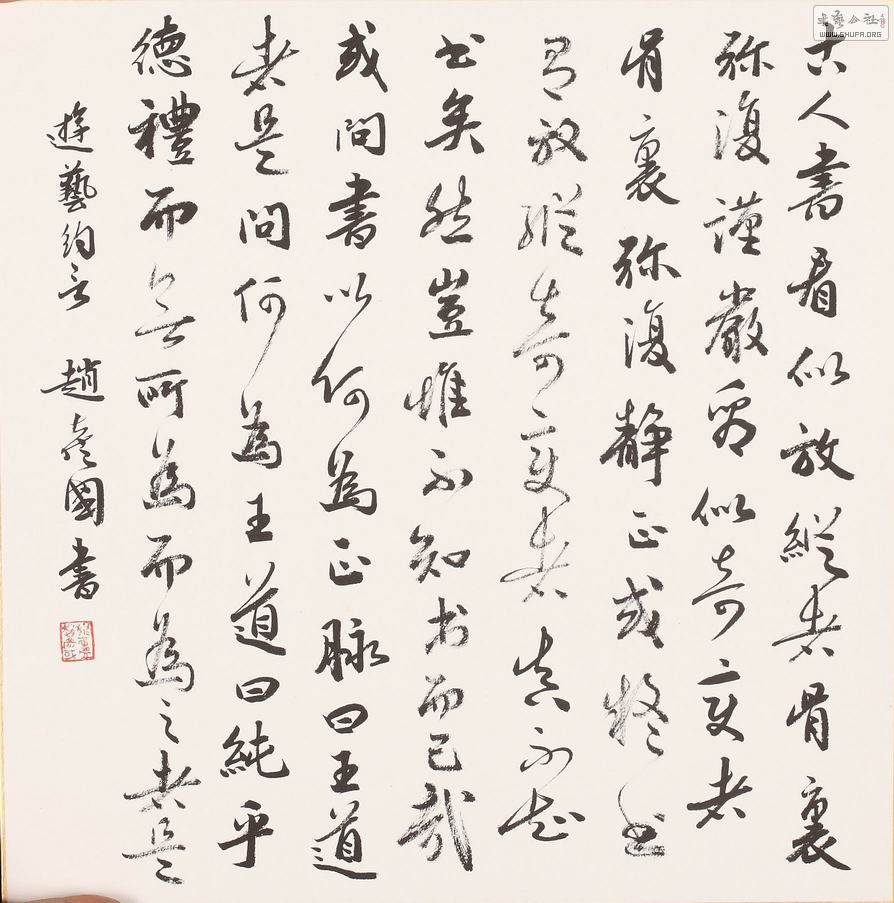 古人書看似放縱者骨裏
弥復謹嚴看似奇变者
骨裏弥復静正或疑书
有放縱奇变者真不知
书矣然豈惟不知书而已哉
或問書以何為正脉曰王道
者是問何為王道曰純乎
德禮而无所為而為之者是
遊藝約言 趙彦國書
書藝公社
WWW.SHUFA.ORG